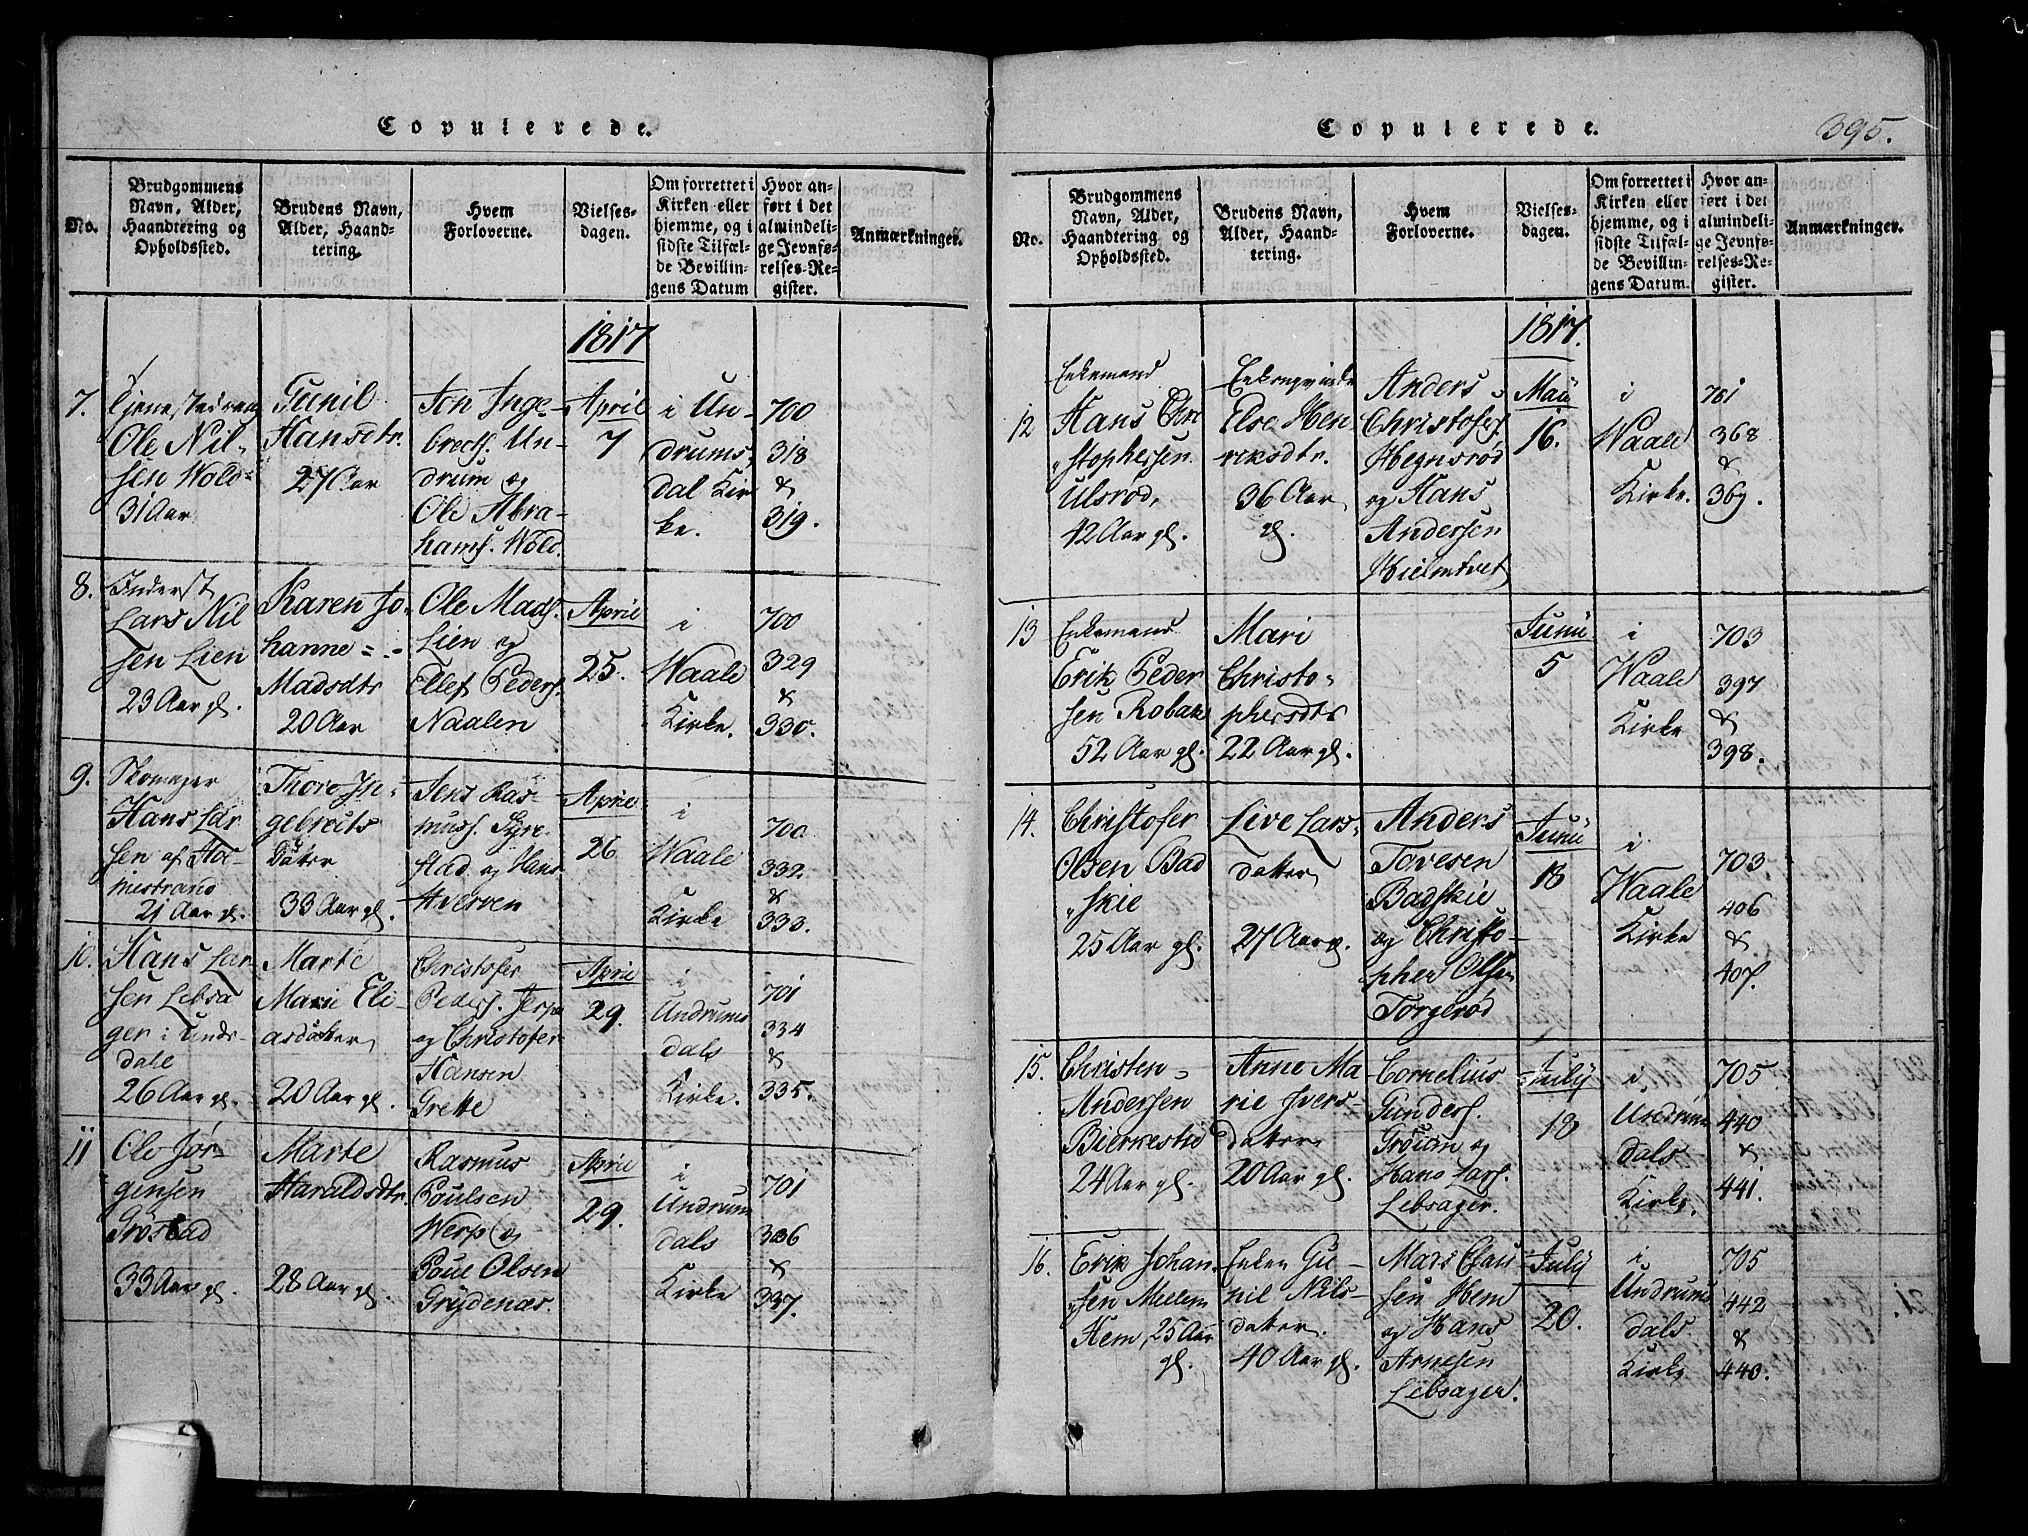 Copulerede.
No.
Brudgommens
Navn, Alder,
Haandtering og
Opholdssted.
Brudens Navn,
Alder, Haand-
tering.
Hvem
Forloverne.
Vielses-
dagen.
Om forrettet i
Kirken eller
hjemme, og i
sidste Tilfæl-
de Bevillin-
gens Datum
Hvor an-
ført i det
almindeli-
ge Jevnfø-
relses-Re-
gister.
Anmærkninger.
1817
7.
Tjenestedreng
Ole Nil-
sen Wold
31 Aar
Gunil
Hansdtr.
27 Aar
Jon Inge-
brets. Un-
drum og
Ole Abra-
hams. Wold.
April
7
i Un-
drums-
dal Kir
ke.
700
318
&
319.
8.
Inderst
Lars Nil
sen Lien
23 Aar gl.
Karen Jo-
hanne =
Madsdtr
20 Aar
Ole Mads.
Lien og
Ellef Peders.
Naalen
April
25.
i
Waale
Kirke.
700
329
&
330.
9.
Skomager
Hans Lar
sen af Hol-
mestrand
21 Aar gl.
Thore In-
gebrets
Datter
33 Aar gl.
Jens Ras-
muss.
stad og Hans
April
26
i
Waale
Kirke
700
332
&
333.
10.
Hans Lar-
sen Lebsa
ger i Unds-
dahl
26 Aar gl.
Marte
Marie Eli-
asdatter
20 Aar gl.
Christofer
Peders.
og Christofer
Hansen
Grette
April
29.
i
Undrums
dals
Kirke.
701
334
&
335.
11
Ole Jør-
gensen
Frostad
33 Aar gl.
Marte
Haraldsdtr.
28 Aar gl.
Rasmus
Poulsen
Werp og
Poul Olsen
Greydenæs.
April
29.
i
Undrum
dals
Kirke
701
336
&
337.
Copulerede.
395.
No.
Brudgommens
Navn, Alder,
Haandtering og
Opholdssted.
Brudens Navn,
Alder, Haand-
tering.
Hvem
Forloverne.
Vielses-
dagen.
Om forrettet i
Kirken eller
hjemme, og i
sidste Tilfæl-
de Bevillin-
gens Datum.
Hvor an-
ført i det
almindeli-
ge Jevnfø-
relses-Re-
gister.
Anmærkninger.
1817.
12
Enkemand
Hans Chri
stophersen
Ulsrød,
42 Aar gl.
Enkeqvinde
Else Hen
riksdtr.
36 Aar
gl.
Anders
Christofers.
Hegnsrød
og Hans
Andersen
Hielmtvet
Maii
16.
i
Waale
Kirke.
701
368
&
369.
13
Enkemand
Erik Peder
sen Robak
52 Aar gl.
Mari
Christo-
phersdtr
22 Aar gl.
Junii
5
i
Waale
Kirke
703
397
&
398.
14.
Christofer
Olsen Bad
skie
25 Aar gl.
Live Lars-
datter
27 Aar gl.
Anders
Tovesen
Badskie
og Christo-
pher Olsen
Torgerød
Junii
18
i
Waale
Kirke
703.
406
&
407.
15.
Christen
Andersen
Bierkestø
24 Aar gl.
Anne Ma
rie Ivers-
datter
20 Aar gl.
Cornelius
Gunders.
og
Hans Lars.
Lebsager.
July
18
i
Undrum
dals
Kirke.
705
440
&
441.
16.
Erik Johan-
sen Mellem
Hem, 25 Aar
gl.
Enken Gu-
nil Nils-
datter.
40 Aar gl.
Mads Clau
sen Hem
og Hans
Arnesen
Lebsager.
July
20.
i
Undrums
dals
Kirke
705
442
&
443.